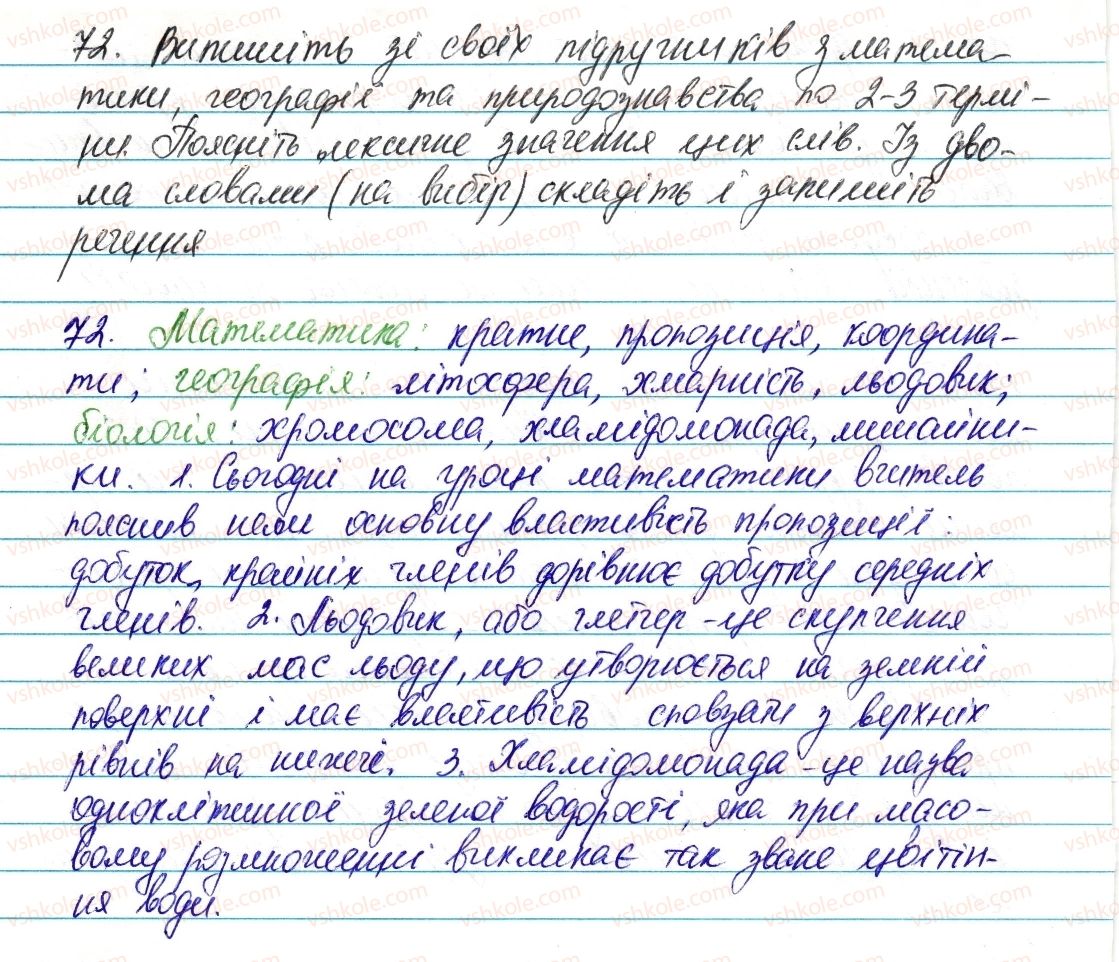 72. Випишіть зі своїх підручників з матема-
тики, географії та природознавства по 2-3 термі-
ни. Поясніть лексичне значення цих слів. Із дво-
ма словами (на вибір) складіть і запишіть
речення
72. Математика: кратне, пропозиція, координа-
ти; географія: літосфера, хмарність, льодовик;
біологія: хромосома, хламідомонада, лишайни-
ки. 1. Сьогодні на уроці математики вчитель
пояснив нам основну властивість пропозиції:
добуток, крайніх членів дорівнює добутку середніх
членів. 2. Льодовик, або глетчер - це скупчення
великих мас льоду, що утворюється на земній
поверхні і має властивість сповзати з верхніх
рівнів на нижчі. 3. Хламідомонада - це назва
одноклітинної зеленої водорості, яка при масо-
вому розмноженні викликає так зване цвітін-
ня води.